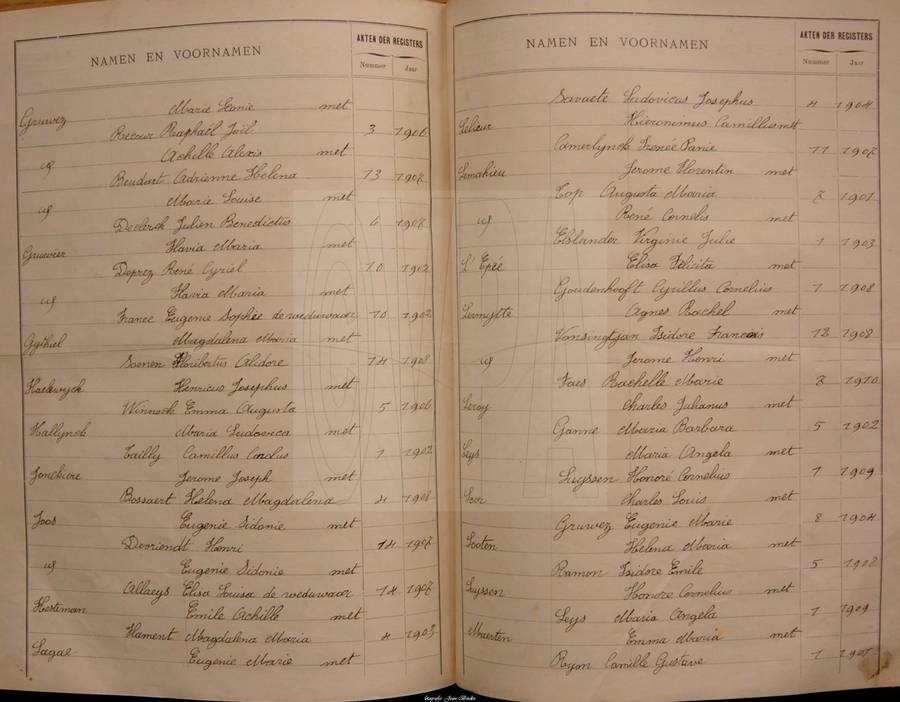 NAMEN EN VOORNAMEN AKTEN DER REGISTERS
Nummer Jaar
Marie Leonie met
Gruwez
Recour Raphaël Joël 3 1906
id Achille Alexis met
Beudaert Adrienne Helena 13 1907
id Marie Louise met
Declerck Julien Benedictus 6 1907
Gruwier Flavia Maria met
Deprez René Cyriel 10 1902
id Flavia Maria met
France Eugenie Sophie de weduwaar 10 1902
Gythiel Magdalena Maria met
Soenen Floribertus Alidore 14 1908
Haelewyck Henricus Josephus met
Winnock Emma Augusta 5 1906
Hallynck Maria Ludovica met
Tailly Camillus Carolus 1 1902
Jonckiere Jerome Joseph met
Bossaert Helena Magdalena 4 1908
Joos Eugenie Sidonie met
Devriendt Henri 14 1907
id Eugenie Sidonie met
Allaeys Elisa Louisa de weduwaar 14 1907
Hestman Emile Achille met
Hament Magdalena Maria 4 1903
Lagae Eugenie Marie met
NAMEN EN VOORNAMEN AKTEN DER REGISTERS
Nummer Jaar
Savaete Ludovicus Josephus 4 1904
Lelieur Hieronimus Camillus met
Camerlynck Irenée Sanie 11 1907
Lemahieu Jerome Florentin met
Top Augusta Maria 7 1901
id René Cornelis met
Elslander Virginie Julie 1 1903
L'Epée Elisa Felicita met
Goudenhooft Cyrillus Cornelius 1 1908
Lermytte Agnes Rachel met
Vansingtjan Isidore Francois 12 1908
id Jerome Henri met
Faes Rachelle Marie 7 1910
Leroy Charles Julianus met
Ganne Maria Barbara 5 1902
Leys Maria Angela met
Luyssen Honoré Cornelius 1 1909
Loor Charles Louis met
Gruwez Eugenie Marie 8 1904
Looten Helena Maria met
Ramon Isidore Emile 5 1908
Luyssen Honoré Cornelius met
Leys Maria Angela 1 1909
Maerten Emma Maria met
Ryon Camille Gustave 1 1907